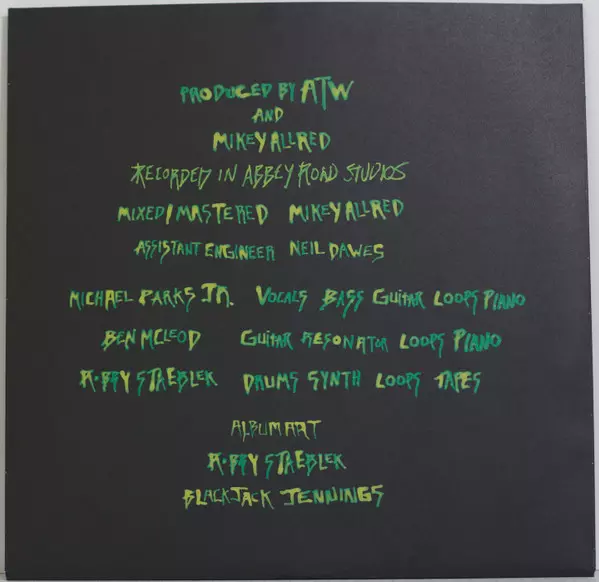 PRODUCED BY ATW
AND
MIKEY ALLRED
RECORDED IN ABBEY ROAD STUDIOS
MIXED/MASTERED MIKEY ALLRED
ASSISTANT ENGINEER NEIL DAWES
MICHAEL PARKS JR. VOCALS BASS GUITAR LOOPS PIANO
BEN MCLEOD GUITAR RESONATOR LOOPS PIANO
R•BBY STAEBLER DRUMS SYNTH LOOPS TAPES
ALBUM ART
R•BBY STAEBLER
BLACKJACK JENNINGS